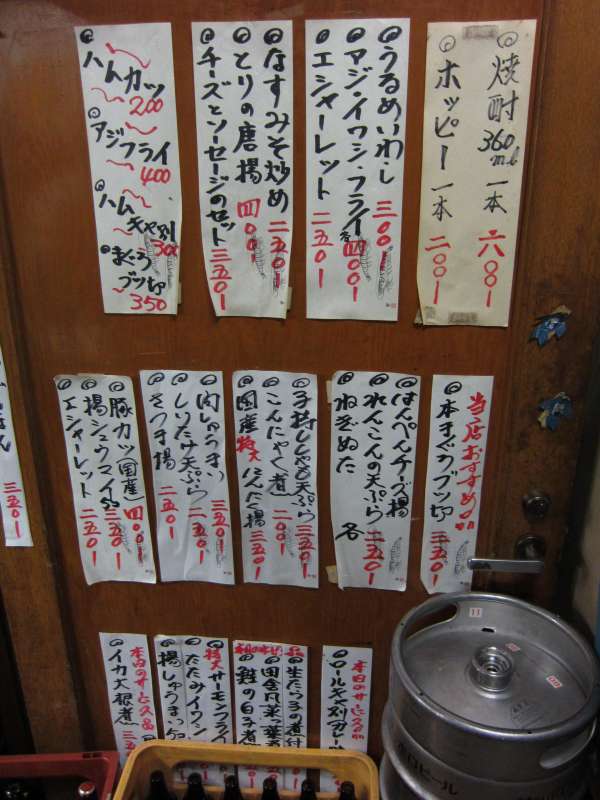 焼酎360ml 一本 六〇〇
ホッピー 一本 二〇〇
うるめいわし 三〇〇
アジ・イワシ・フライ各 四〇〇
エシャーレット 二五〇
なすみそ炒め 二五〇
とりの唐揚 四〇〇
チーズとソーセージのセット 三五〇
ハムカツ
200
アジフライ
400
ハム
キャベツ
300
まぐろ
ブツ切
350
当店おすすめの品
本まぐろブツ切 三五〇
はんぺんチーズ揚
れんこんの天ぷら 二五〇
ねぎぬた 各
子持ししゃも天ぷら 三五〇
こんにゃく煮 二〇〇
国産特大にんにく揚 三五〇
肉しゅうまい 三五〇
しいたけ天ぷら 二五〇
さつま揚 二五〇
豚カツ(国産) 四〇〇
揚シュウマイ 三五〇
エシャーレット 二五〇
本日のサービス品
ロールキャベツ
生たらこの煮付
田舎風
鮭の白子煮
特大サーモンフライ
たたみイワシ
揚しゅうまい
本日のサービス品
イカ大根煮
11